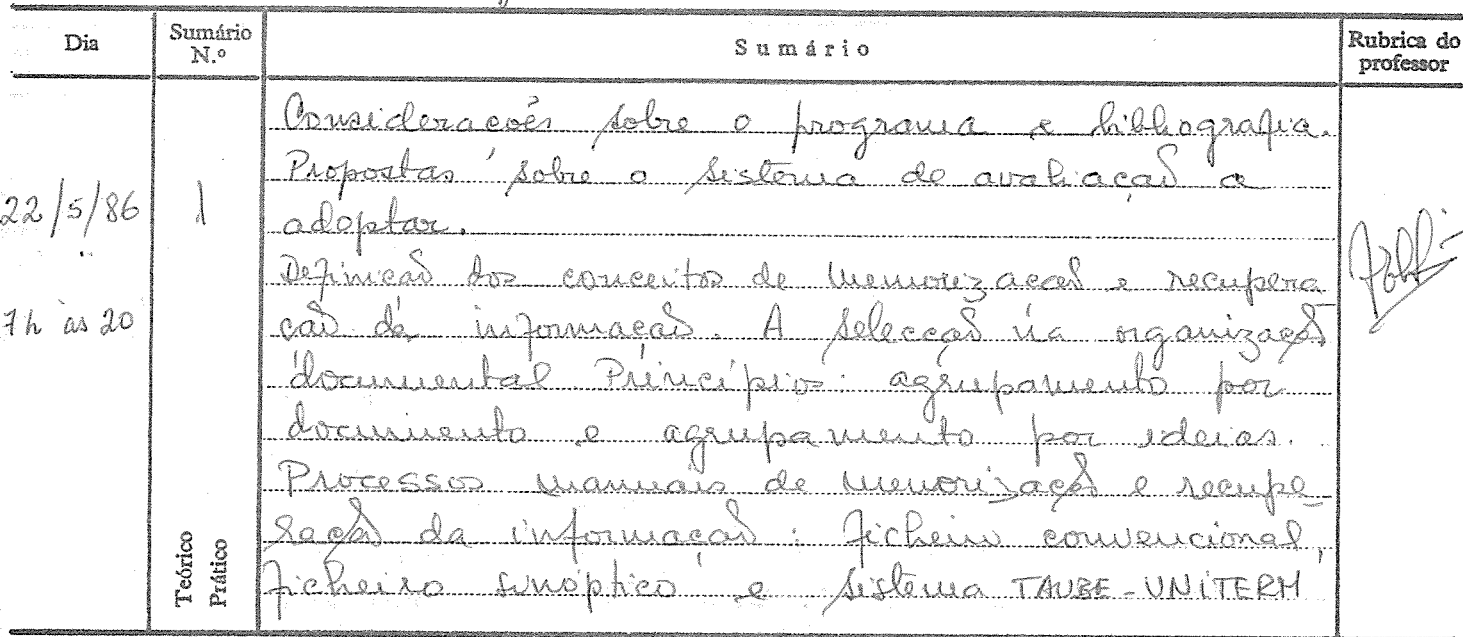 Dia
Sumário N.º
Sumário
Rubrica do professor
22/5/86
1
7h às 20
Teórico
Prático
Considerações sobre o programa e bibliografia.
Propostas sobre o sistema de avaliação a
adoptar.
Definição dos conceitos de memorização e recupera
ção da informação. A selecção na organização
documental. Princípios: agrupamento por
documento e agrupamento por ideias.
Processos manuais de memorização e recupe
ração da informação: ficheiro convencional,
ficheiro sinóptico e sistema TAUBE-UNITERM